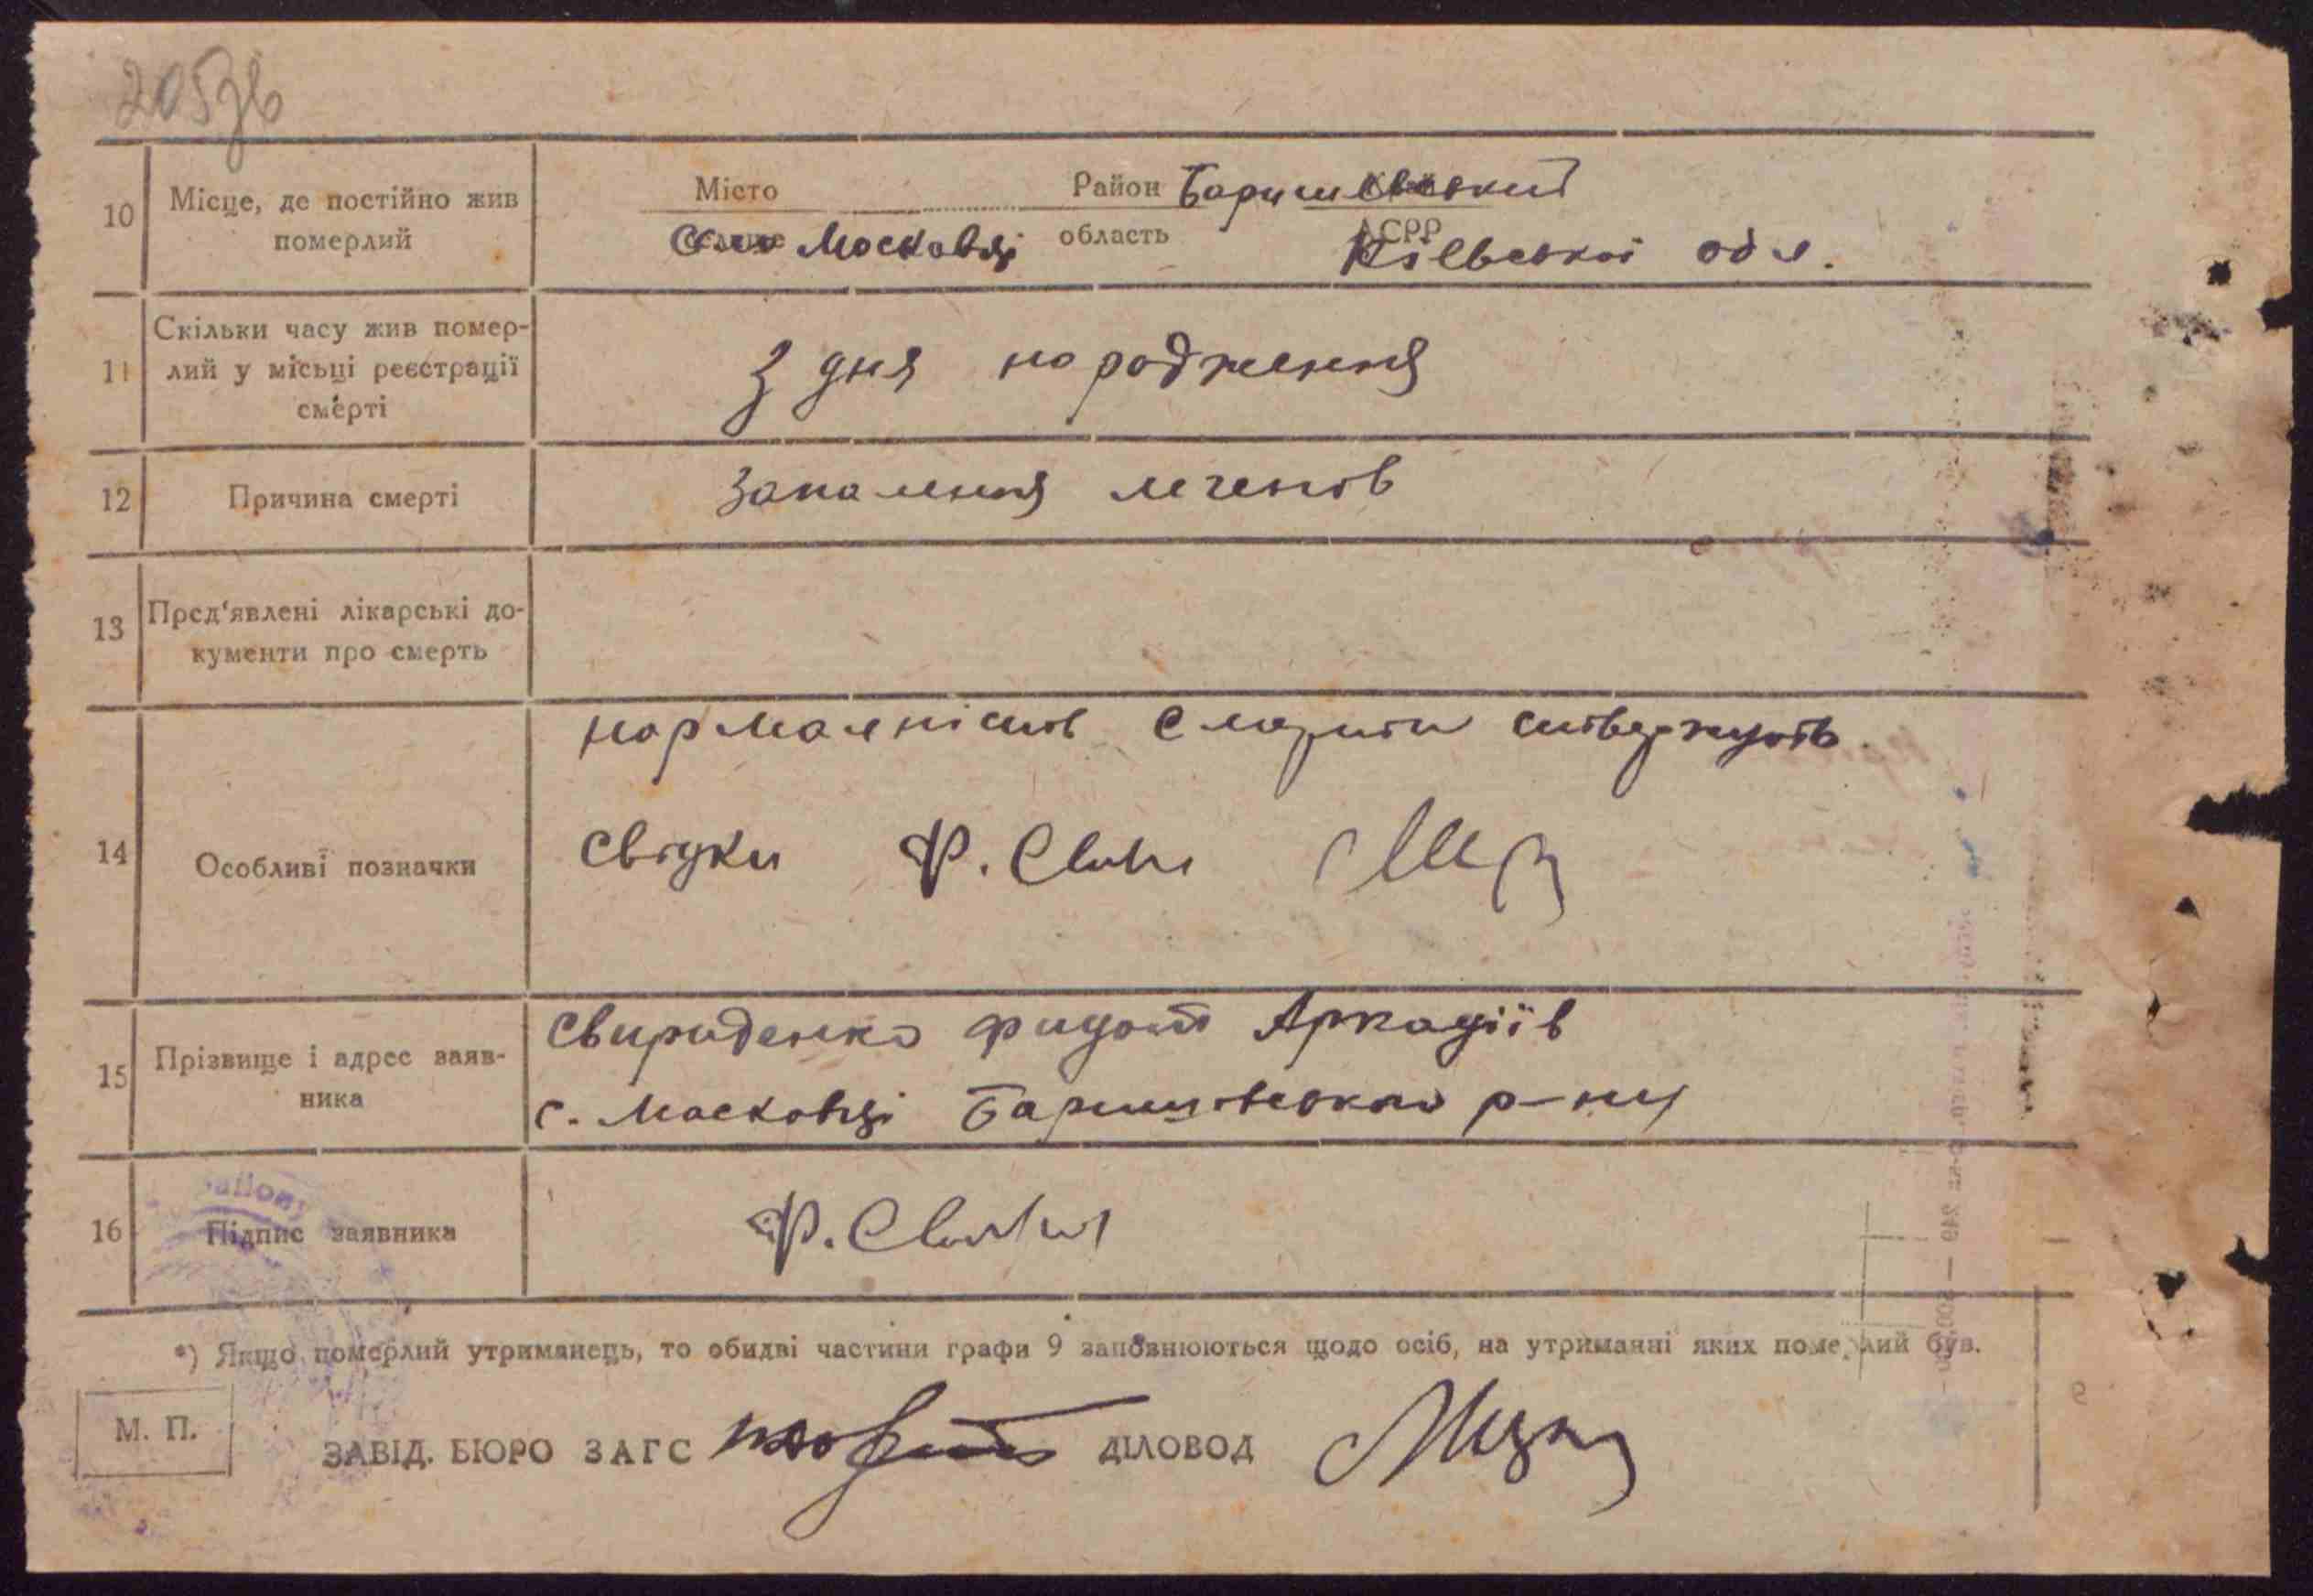 205зв
10 Місце, де постійно жив померлий
Місто Район Баришевський
село Московці область АСРР Київської обл.
11 Скільки часу жив помер-
лий у місьці реєстрації
смерті
З дня народження
12 Причина смерті Запалення легенів
13 Пред'явлені лікарські до-
кументи про смерть
нормалність смерти ствержують
14 Особливі позначки свідки Ф. Свири
15 Прізвище і адрес заяв-
ника
Свириденко Фидот Аркадіїв
с. Московці Баришівського р-ну
16 Підпис заявника Ф.
*) Якщо померлий утриманець, то обидві частини графи 9 заповнюються щодо осіб, на утриманні яких померлий був.
М. П.
ЗАВІД. БЮРО ЗАГС ДІЛОВОД